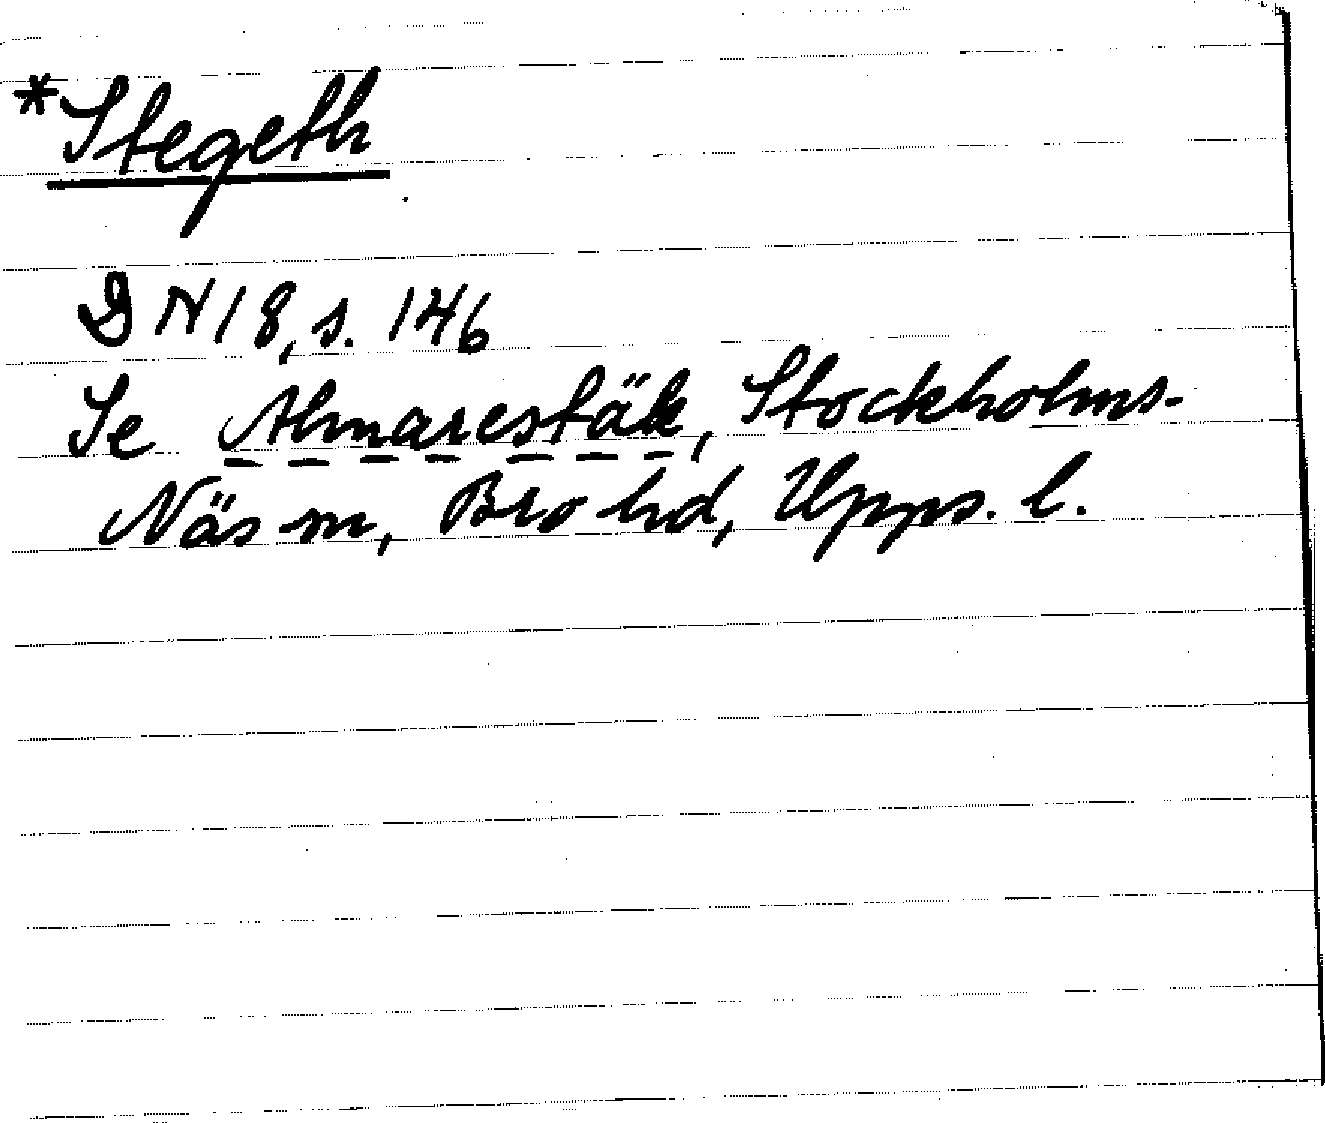 *Stegeth
DN 18, s. 146
Se Almarestäk, Stockholms-
Näs sn, Bro hd, Upps. l.